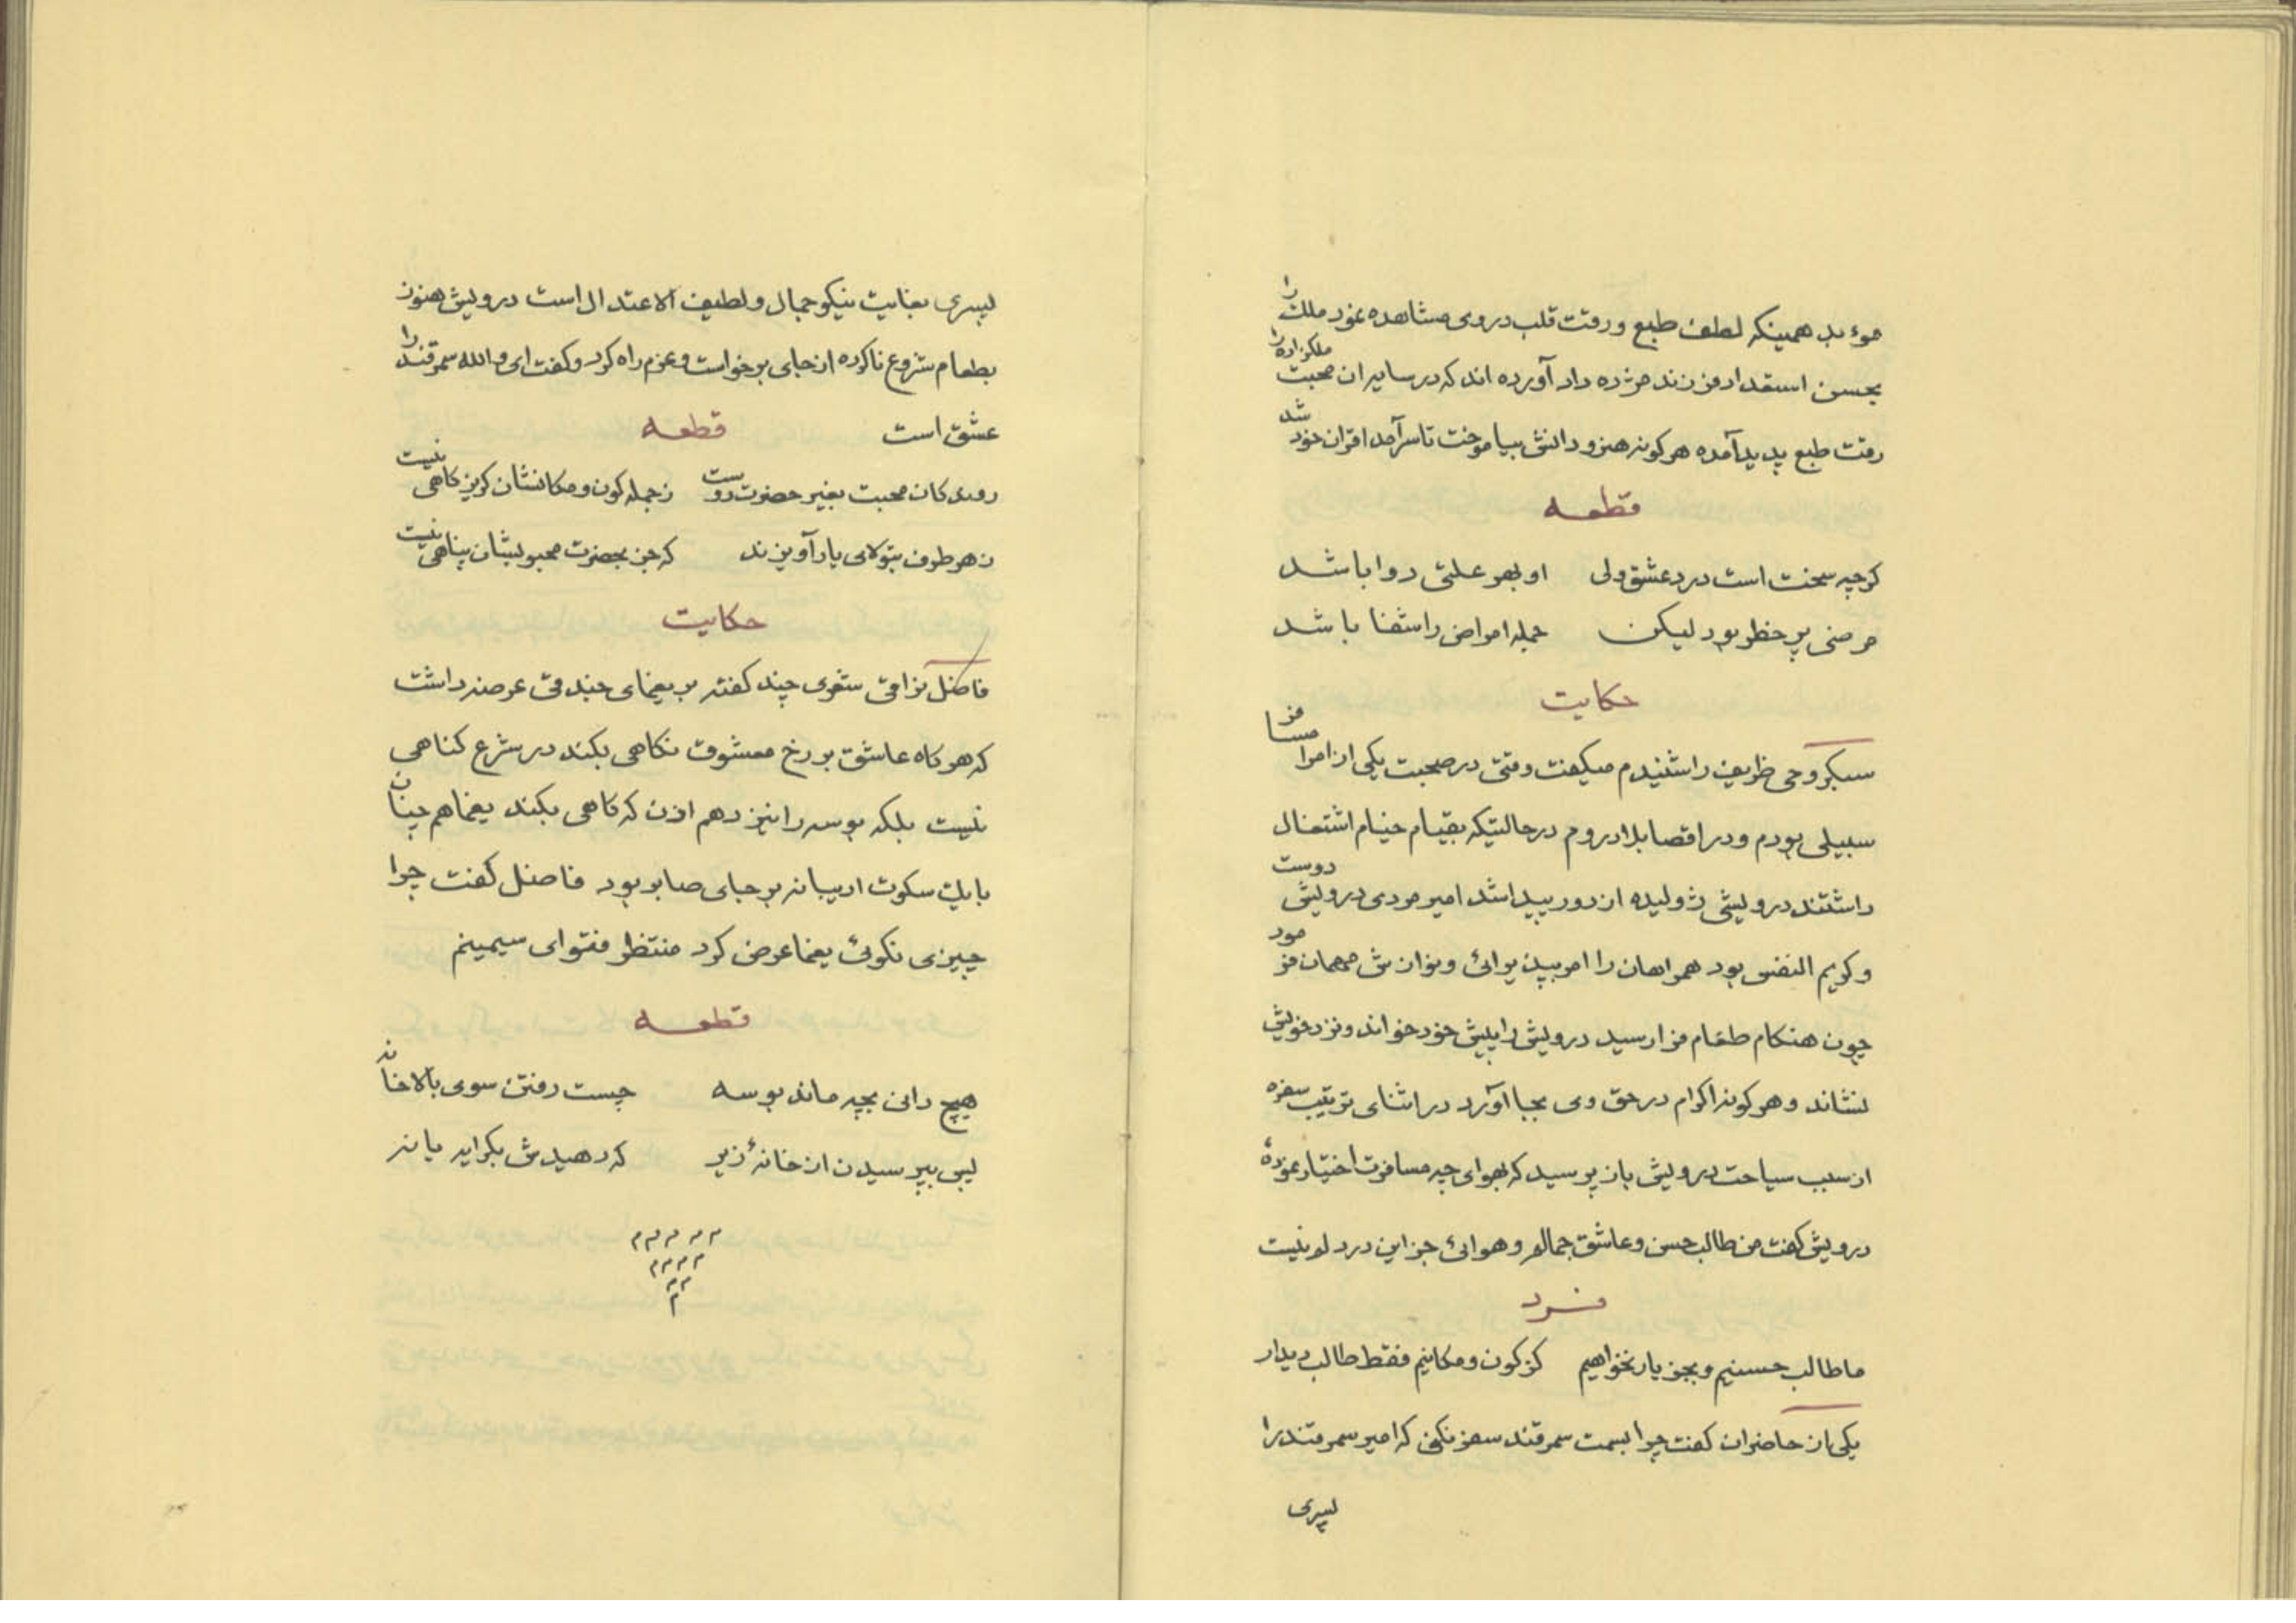 موءبد همینکه لطف طبع ورقت قلب در وی مشاهده نمود ملک را
بحسن استعداد فرزند مژده داد آورده اند که در سایه ان محبت ملکزاده را
رقت طبع پدید آمده هر کونه هنر و دانش بیاموخت تا سرآمد اقران خود شد
قطعه
کرچه سخت است درد عشق ولی او بهر علتی دوا باشد
مرضی پر خطر بود لیکن جمله امراض را شفا باشد
حکایت
سبکروحی ظریف را شنیدم میکفت وقتی در صحبت یکی از امرا مسافر
سبیلی بودم و در اقصا بلاد روم در حالتیکه بقیام خیام اشتغال
داشتند درویشی ژولیده از دور پیدا شد امیر مردی درویش دوست
و کریم النفس بود همراهان را امر بپذیرائی و نوازش مهمان فرمود
چون هنکام طعام فرا رسید درویش را پیش خود خواند و نزد خویش
نشاند و هر کونه اکرام در حق وی بجا آورد در اثنای ترتیب سفره
از سبب سیاحت درویش باز پرسید که بهوای چه مسافرت اختیار نمودهٔ
درویش کفت من طالب حسن و عاشق جمالم و هوائی جز این در دلم نیست
فرد
ما طالب حسنیم و بجز یار نخواهیم کز کون و مکانیم فقط طالب دیدار
یکی از حاضران کفت چرا بسمت سمرقند سفر نکنی که امیر سمرقند را
پسری
پسری بغایت نیکو جمال و لطیف الاعتدال است درویش هنوز
بطعام شروع ناکرده از جای برخواست و عزم راه کرد و کفت ای والله سمرقند را
عشق است قطعه
روندکان محبت بغیر حضرت دوست ز جمله کون و مکانشان کریزکاهی نیست
ز هر طرف بتولای یار آویزند که جز بحضرت محبوبشان پناهی نیست
حکایت
فاضل نراقی شعری چند کفته بر یغمای جندقی عرضه داشت
که هر کاه عاشق بر رخ معشوق نکاهی بکند در شرع کناهی
نیست بلکه بوسه را نیز دهم اذن که کاهی بکند یغما هم چنان
با یک سکوت ادیبانه بر جای صابر بود فاضل کفت چرا
چیزی نکوئی یغما عرض کرد منتظر فتوای سیمینم
قطعه
هیچ دانی بچه ماند بوسه چیست رفتن سوی بالاخانه
لیی بپرسیدن از خانهٔ زیر که دهیدش بکرایه یا نه
م م م م م
م م م م
م م
م